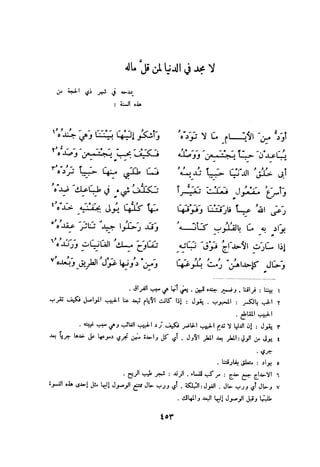 لا مجد في الدنيا لمن قلّ ماله
يمدحه في شهر ذي الحجة من
هذه السنة :
أَوَدُّ مِنَ الأَيَّامِ مَا لَا تَوَدُّهُ
وَأَشْكُو إِلَيْهَا بَيْنَنَا وَهْيَ جُنْدُهُ ١
يُبَاعِدْنَ حِبًّا يَجْتَمِعْنَ وَوَصْلُهُ
فَكَيْفَ بِحِبٍّ يَجْتَمِعْنَ وَصَدُّهُ ٢
أَبَى خُلُقُ الدُّنْيَا حَبِيبًا تُدِيمُهُ
فَمَا طَلَبِي مِنْهَا حَبِيبًا تَرُدُّهُ ٣
وَأَسْرَعُ مَفْعُولٍ فَعَلْتَ تَغَيُّرًا
تَكَلُّفُ شَيْءٍ فِي طِبَاعِكَ ضِدُّهُ
رَعَى اللهُ عِيسًا فَارَقَتْنَا وَفَوْقَهَا
مَهًا كُلُّهَا يُولَى بِجَفْنَيْهِ خَدُّهُ ٤
بِوَادٍ بِهِ مَا بِالقُلُوبِ كَأَنَّهُ
وَقَدْ رَحَلُوا جِيدٌ تَنَاثَرَ عِقْدُهُ ٥
إِذَا سَارَتِ الأَحْدَاجُ فَوْقَ نَبَاتِهِ
تَفَاوَحَ مِسْكُ الغَانِيَاتِ وَرَنْدُهُ ٦
وَحَالٍ كَإِحْدَاهُنَّ رُمْتُ بُلُوغَهَا
وَمِنْ دُونِهَا غَوْلُ الطَّرِيقِ وَبُعْدُهُ ٧
١ بيننا : فراقنا . وضمير جنده للبين . يعني أنها هي سبب الفراق .
٢ الحب بالكسر : المحبوب . يقول : إذا كانت الأيام تبعد عنا الحبيب المواصل فكيف تقرب
الحبيب المقاطع .
٣ يقول : إن الدنيا لا تديم الحبيب الحاضر فكيف ترد الحبيب الغائب وهي سبب غيبته .
٤ يولى من الولي : المطر بعد المطر الأول . أي كل واحدة منهن تجري دموعها على خدها جرياً بعد
جري .
٥ بواد : متعلق بفارقتنا .
٦ الأحداج جمع حدج : مركب للنساء . الرند : شجر طيب الريح .
٧ وحال أي ورب حال . الغول : التهلكة . أي ورب حال ممتنع الوصول إليها مثل إحدى هذه النسوة
طلبتها وقبل الوصول إليها البعد والمهالك .
٤٥٣